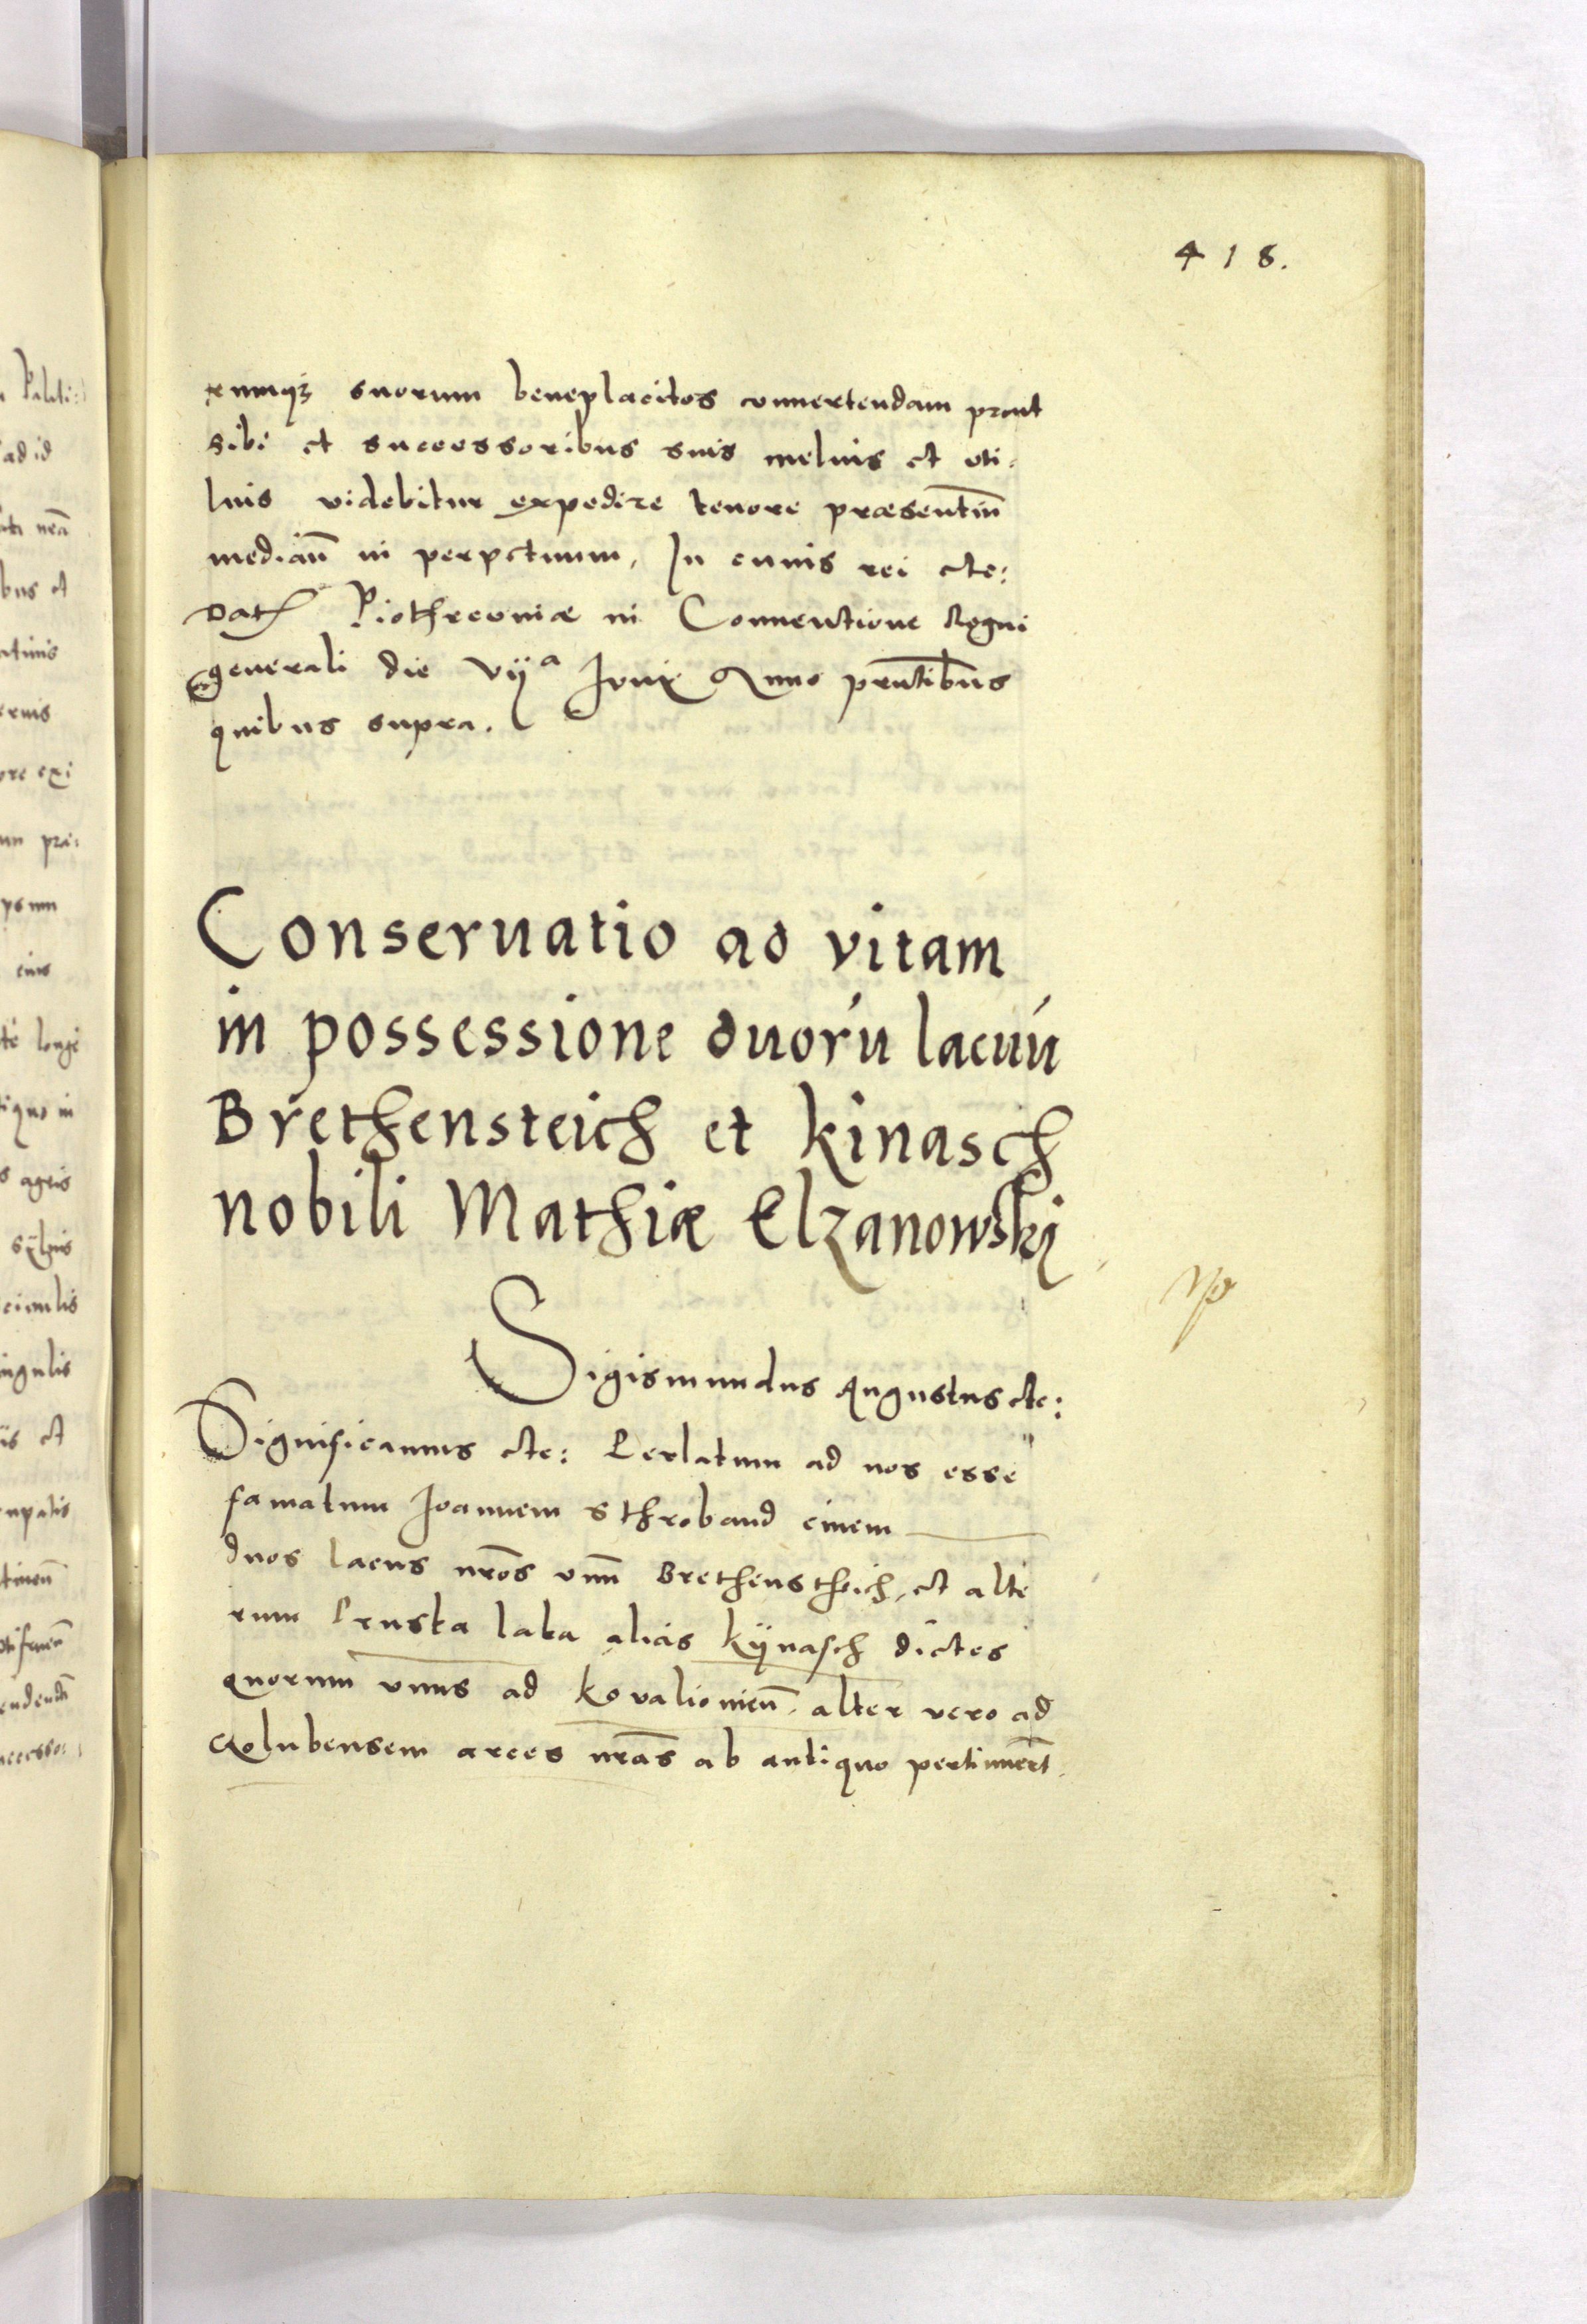 418.
rumq3 suorum beneplacitos conuertendam prout
sibi et successoribus suis melius et uti-
lius videbitur expedire tenore præsentiū
mediañ in perpetuum, In cuius rei etc:
Dat Piothrcouiæ in Conuentione Regni
generali die vijª Anno prñtibus
quibus supra.
Conseruatio ad vitam
in possessione duorú lacuú
Brethensteich et kinasch
nobili Mathiæ Elzanowskj
Sigismundus Augustus etc:
Significamus etc: Perlatum ad nos esse
famatum Joannem Sthroband ciuem
duos lacus nr̃os vnū Brethenstheich, et alte
rum Pruska laka alias kÿnasch dictos
quorum vnus ad kovalionieñ, alter vero ad
Golubensem arces nr̃as ab antiquo pertinuert̃